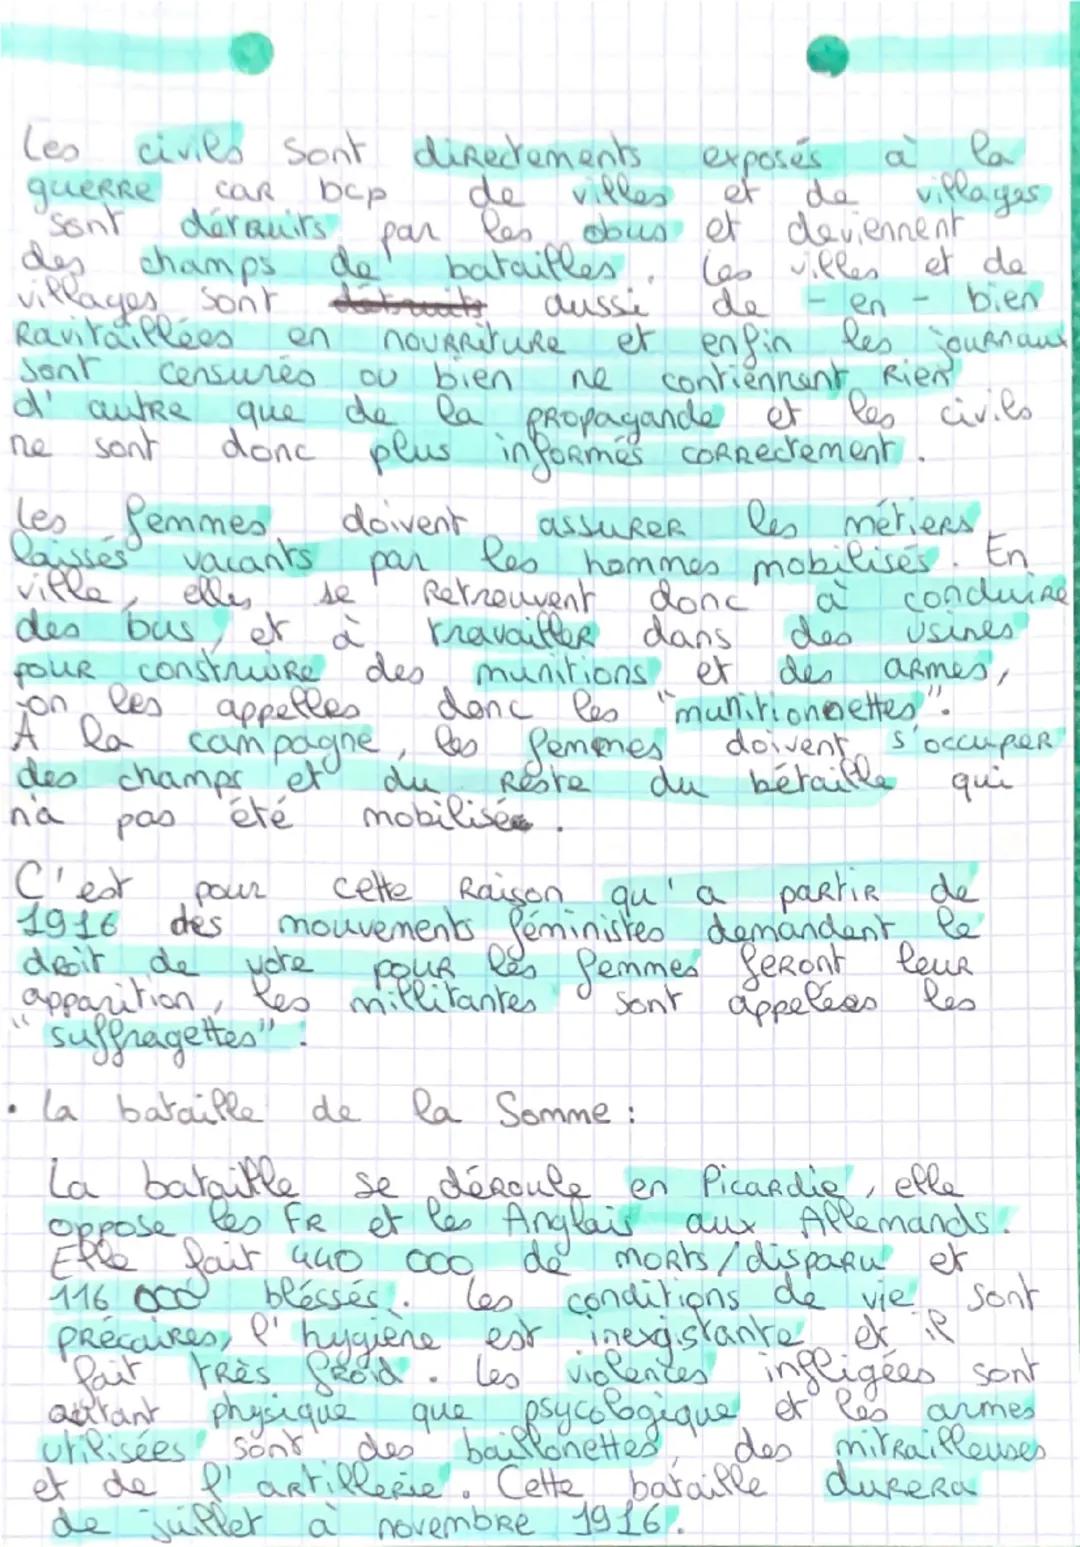 Les civils sont directements exposés à la
guerre car bcp de villes et de villages
sont détruits par les obus et deviennent
des champs de batailles. Les villes et de
villages sont détruits aussi de - en - bien
Ravitaillées en nourriture et enfin les journaux
sont censurés ou bien ne contiennent Rien
d'autre que de la propagande et les civils
ne sont donc plus informés correctement.
Les femmes doivent assurer les métiers
laissés vacants par les hommes mobilisés. En
ville, elles se Retrouvent donc à conduire
des bus, et à travailler dans des usines
pour construire des munitions et des armes,
on les appelles donc les "munitionnettes".
À la campagne, les femmes doivent s'occuper
des champs et du reste du bétaille qui
n'a pas été mobilisée.
C'est pour cette Raison qu'a partir de
1916 des mouvements féministes demandent le
droit de vote pour les femmes feront leur
apparition, les millitantes sont appelées les
"suffragettes".
• La bataille de la Somme :
La bataille se déroule en Picardie, elle
oppose les FR et les Anglais aux Allemands.
Elle fait 440 000 de morts/disparu et
116 000 bléssés. Les conditions de vie sont
précaires, l'hygiène est inexistante et il
fait très froid. Les violences infligées sont
autant physique que psycologique et les armes
utilisées sont des baillonettes, des mitrailleuses
et de l'artillerie. Cette bataille durera
de juillet à novembre 1916.